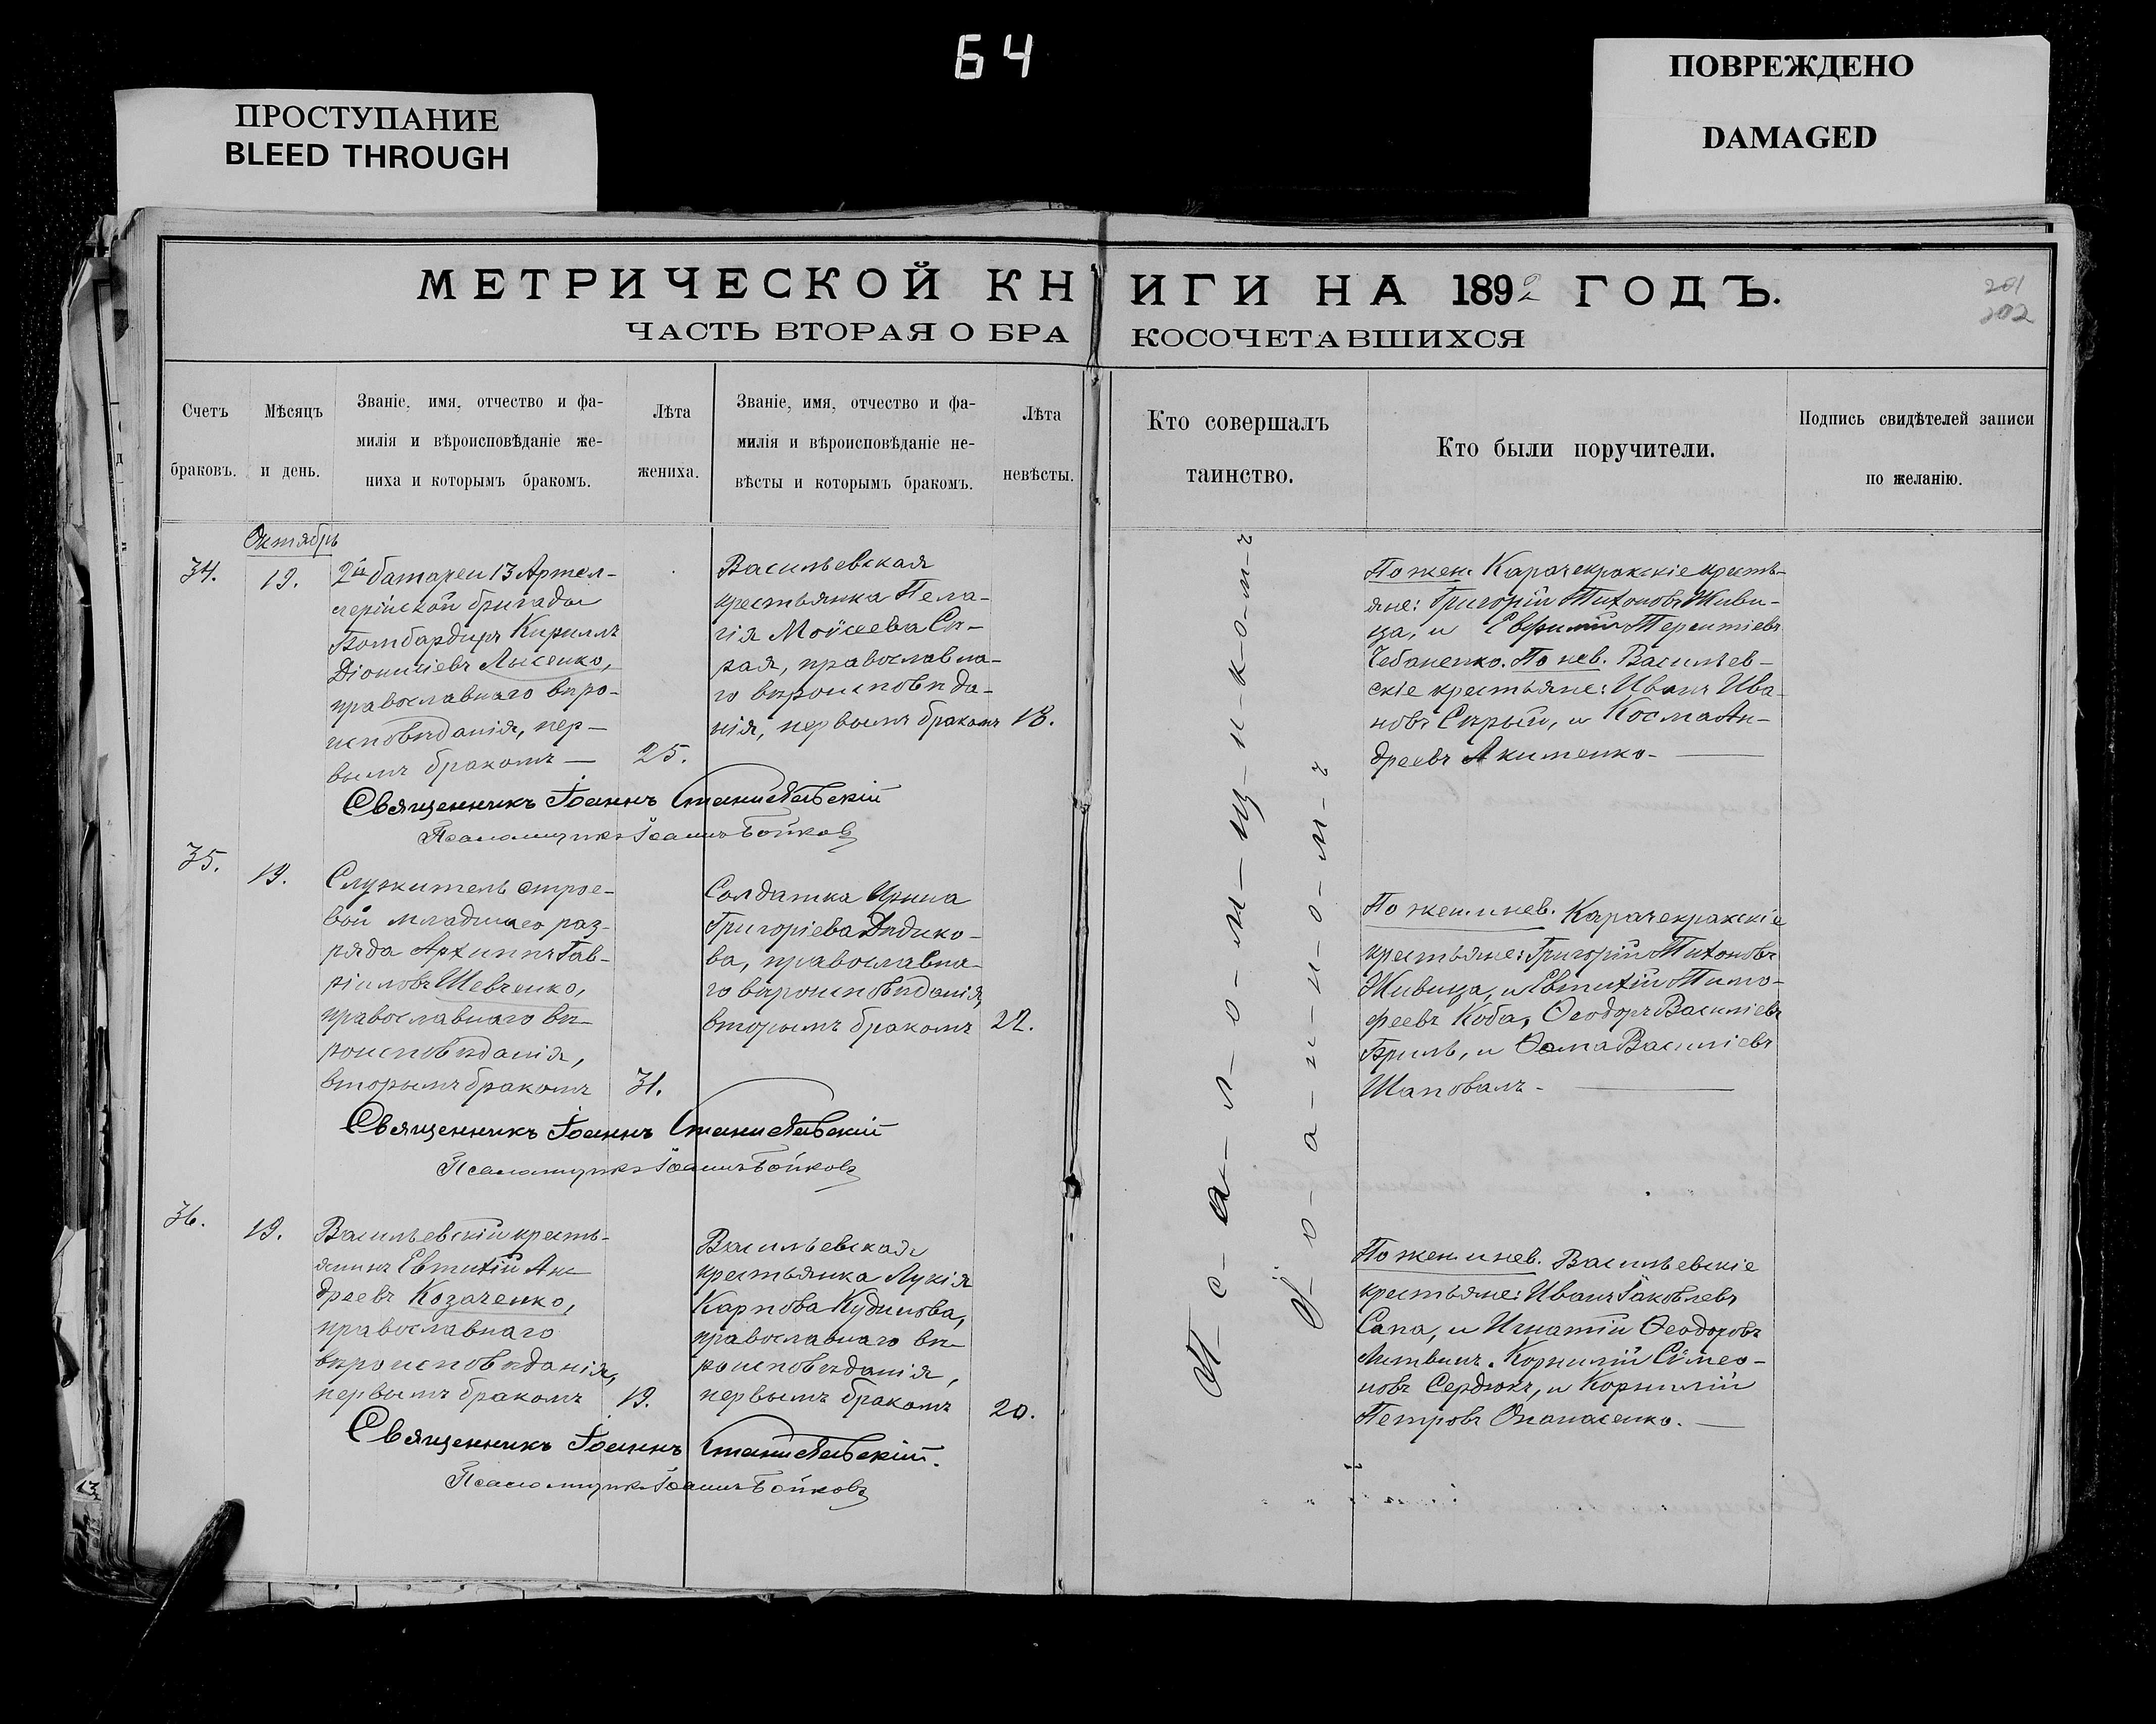 64
ПРОСТУПАНИЕ
BLEED THROUGH
ПОВРЕЖДЕНО
DAMAGED
МЕТРИЧЕСКОЙ КНИГИ НА 1892 ГОДЪ.
201
202
ЧАСТЬ ВТОРАЯ О БРАКОСОЧЕТАВШИХСЯ
Счетъ
браковъ.
Мѣсяцъ
и день.
Званіе, имя, отчество и фа-
милія и вѣроисповѣданіе же-
ниха и которымъ бракомъ.
Лѣта
жениха.
Званіе, имя, отчество и фа-
милія и вѣроисповѣданіе не-
вѣсты и которымъ бракомъ.
Лѣта
невѣсты.
Кто совершалъ
таинство.
Кто были поручители.
Подпись свидѣтелей записи
по желанію.
Октябрь
34.
19.
2й батареи 13 Артил-
лерійской бригады
Бомбардиръ Кириллъ
Діонисіевъ Лысенко,
православнаго вѣро-
исповѣданія, пер-
вымъ бракомъ —
25.
Васильевская
крестьянка Пела-
гія Моѵсеева Сѣ-
рая, православна-
го вѣроисповѣда-
нія, первымъ бракомъ
18.
По жен. Карачекракскіе кресть-
яне: Григорій Тихоновъ Живи-
ца, и Евфимій Терентіевъ
Чебаненко. По нев. Васильев-
скіе крестьяне: Иванъ Ива-
новъ Сѣрый, и Косма Ан-
древъ Акименко.
Священникъ Іоаннъ Станиславскій
Псаломщикъ Іоаннъ Бойковъ
35.
19.
Служитель строе-
вой младшаго раз-
ряда Архиппъ Гав-
ріиловъ Шевченко,
православнаго вѣ-
роисповѣданія,
вторымъ бракомъ
31.
Солдатка Ирина
Григоріева Дѣдико-
ва, православна-
го вѣроисповѣданія,
вторымъ бракомъ
22.
По жен. и нев. Карачекракскіе
крестьяне: Григорій Тихоновъ
Живица, и Евтихій Тимо-
феевъ Коба, Ѳеодоръ Василіевъ
Бриль, и Ѳома Василіевъ
Шаповалъ.
Священникъ Іоаннъ Станиславскій
Псаломщикъ Іоаннъ Бойковъ
36.
19.
Васильевскій кресть-
янинъ Евтихій Ан-
древъ Козаченко,
православнаго
вѣроисповѣданія,
первымъ бракомъ
19.
Васильевская
крестьянка Лукія
Карпова Кудинова,
православнаго вѣ-
роисповѣданія,
первымъ бракомъ
20.
По жен. и нев. Васильевскіе
крестьяне: Иванъ Іаковлевъ
Сапа, и Игнатій Ѳеодоровъ
Литвинъ. Корнилій Симео-
новъ Сердюкъ, и Корнилій
Петровъ Опанасенко.
Священникъ Іоаннъ Станиславскій.
Псаломщикъ Іоаннъ Бойковъ
П-с-а-л-о-м-щ-и-к-о-м-ъ